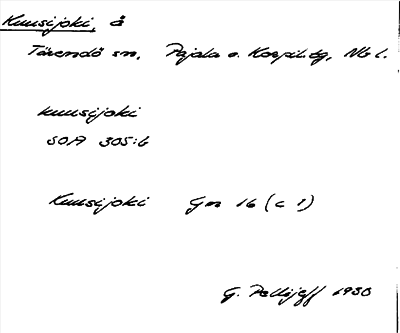 Kuusijoki, å
Tärendö sn, Pajala o. Korpil. tg, Nb l.
kuusijoki
SOA 305:6
Kuusijoki Gm 16 (c 1)
G. Pellijeff 1980